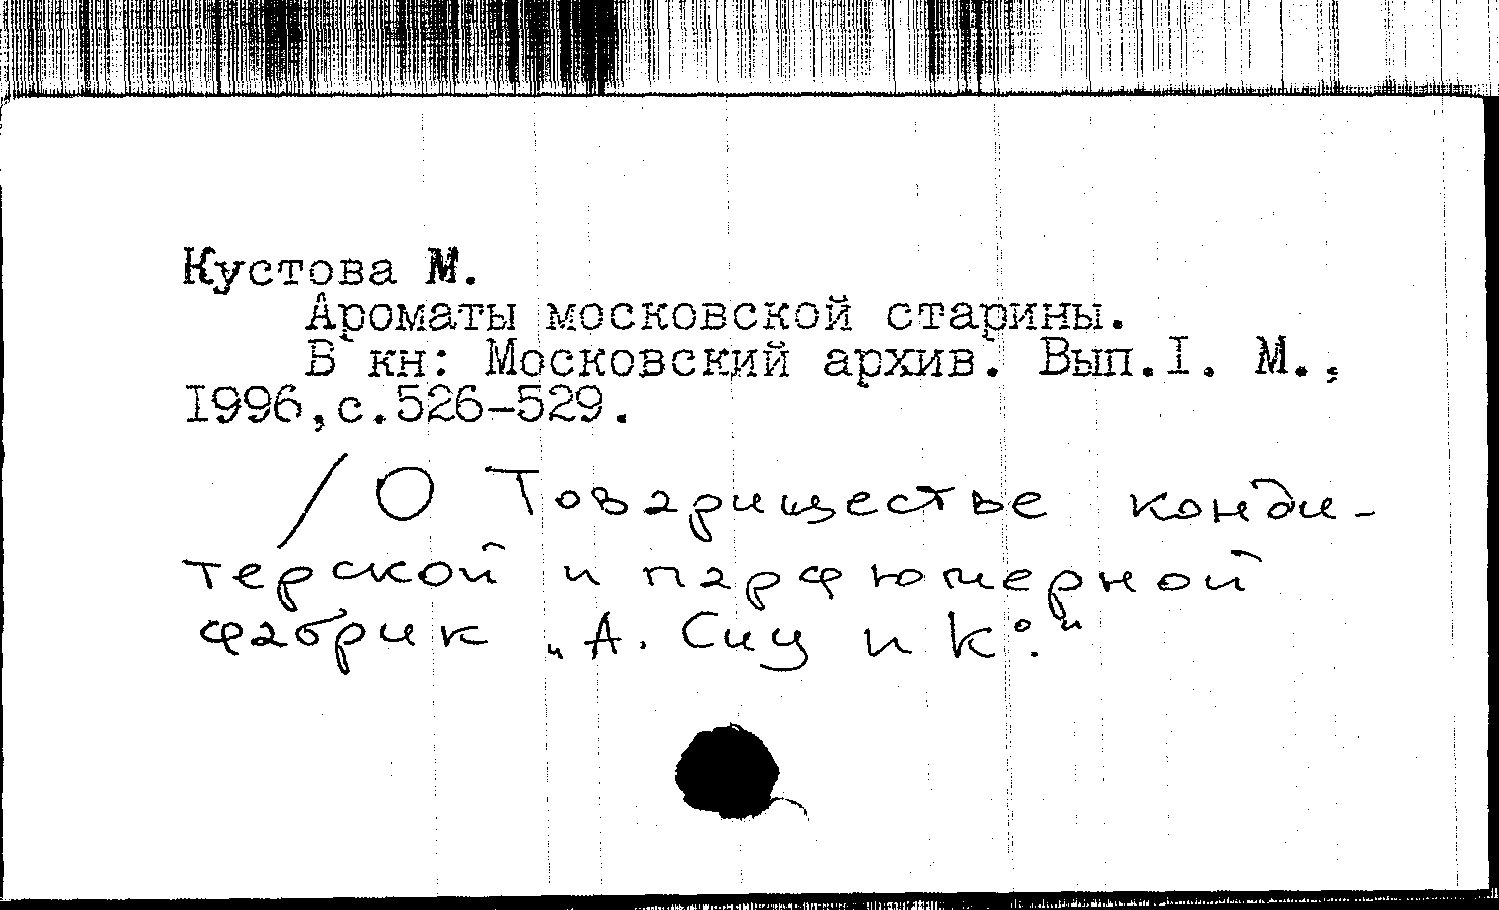 Кустова М.
Ароматы московской старины.
В кн: Московский архив. Вып.I. М.,
I996,с.526-529.
/ О Товариществе конди-
терской и парфюмерной
фабрик „А. Сиу и К°."